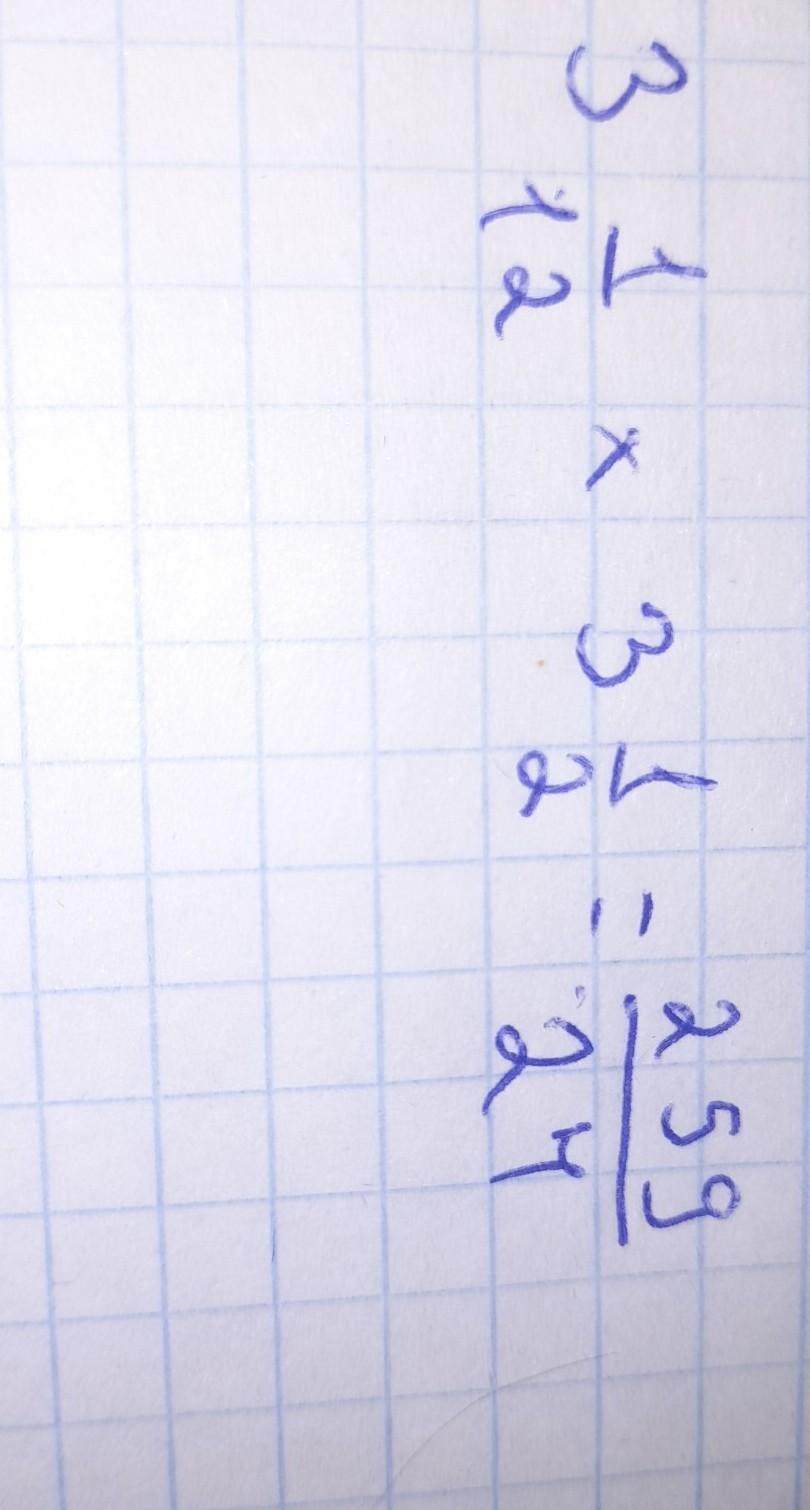 3 1/12 x 3 1/2 = 259/24